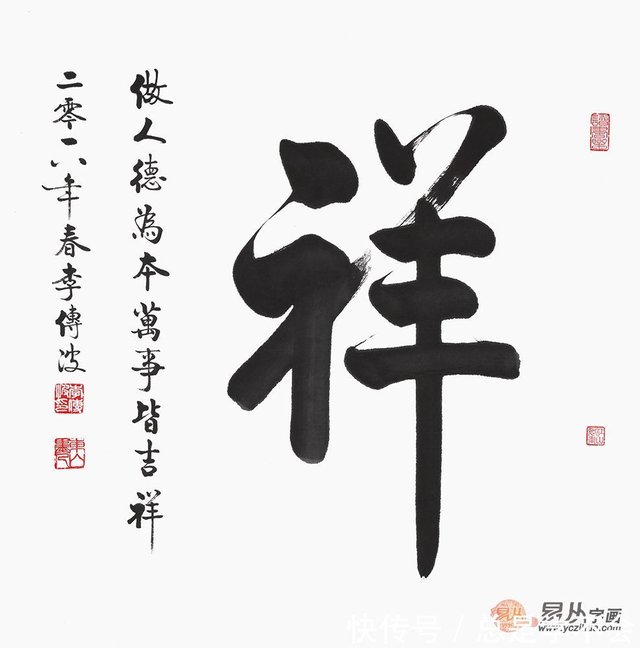 祥
做人德為本萬事皆吉祥
二零一八年春李傳波
易从字画
www.yczihua.com
快传号